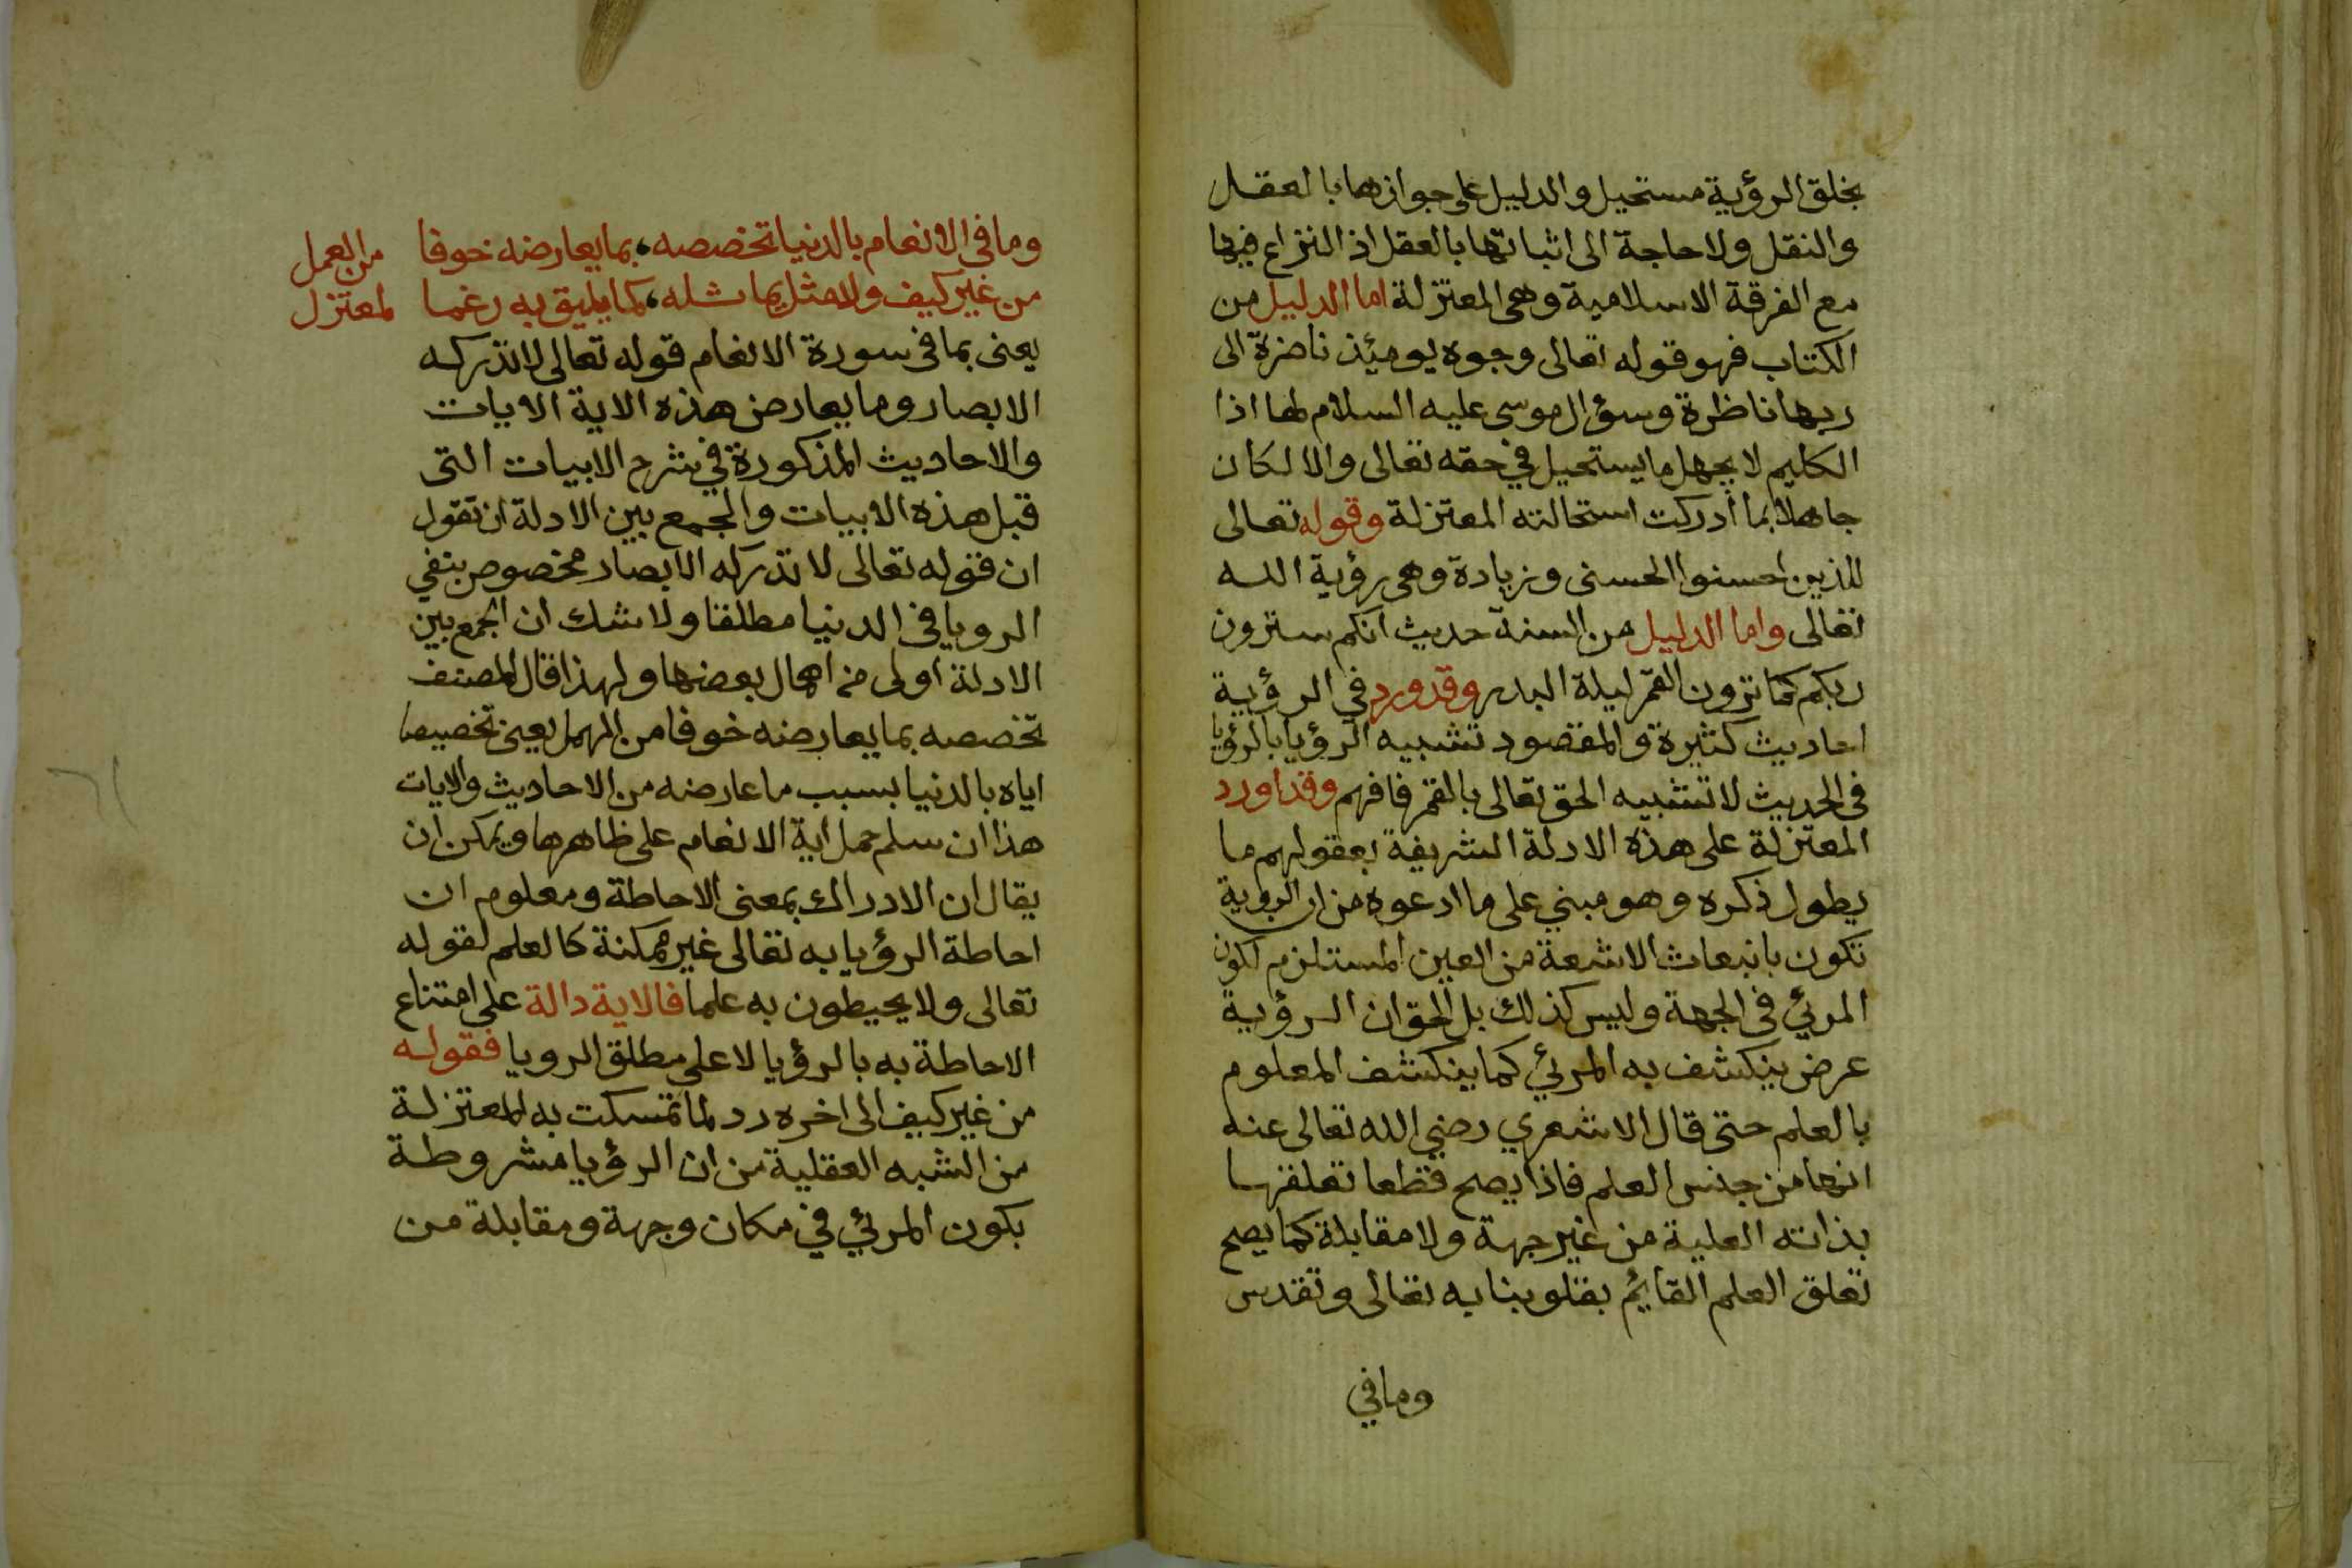 بخلق الرؤية مستحيل والدليل على جوازها بالعقل
والنقل ولا حاجة الى اثباتها بالعقل اذ النزاع فيها
مع الفرقة الاسلامية وهى المعتزلة اما الدليل من
الكتاب فهو قوله تعالى وجوه يومئذ ناضرة الى
ربها ناظرة وسؤال موسى عليه السلام لها اذا
الكليم لا يجهل ما يستحيل في حقه تعالى والا لكان
جاهلا بما أدركت استحالته المعتزلة وقوله تعالى
للذين احسنوا الحسنى وزيادة وهى رؤية الله
تعالى واما الدليل من السنة حديث انكم سترون
ربكم كما ترون القمر ليلة البدر وقد ورد في الرؤية
احاديث كثيرة والمقصود تشبيه الرؤيا بالرؤيا
فى الحديث لا تشبيه الحق تعالى بالقمر فافهم وقد اورد
المعتزلة على هذه الادلة الشريفة بعقولهم ما
يطول ذكره وهو مبني على ما ادعوه من ان الروية
تكون بانبعاث الاشعة من العين المستلزم لكون
المرئي فى الجهة وليس كذلك بل الحق ان الرؤية
عرض ينكشف به المرئي كما ينكشف المعلوم
بالعلم حتى قال الاشعري رضي الله تعالى عنه
انها من جنس العلم فاذا يصح قطعا تعلقها
بذاته العلية من غير جهة ولا مقابلة كما يصح
تعلق العلم القايم بقلوبنا به تعالى وتقدس
وما في
وما فى الانعام بالدنيا تخصصه، بما يعارضه خوفا من العمل
من غير كيف ولا مثل يماثله، كما يليق به رغما لمعتزل
يعنى بما فى سورة الانعام قوله تعالى لا تدركه
الابصار وما يعارض هذه الاية الايات
والاحاديث المذكورة في شرح الابيات التى
قبل هذه الابيات والجمع بين الادلة ان تقول
ان قوله تعالى لا تدركه الابصار مخصوص بنفي
الرويا فى الدنيا مطلقا ولا شك ان الجمع بين
الادلة اولى من اهمال بعضها ولهذا قال المصنف
تخصصه بما يعارضه خوفا من المهمل يعنى تخصيصا
اياه بالدنيا بسبب ما عارضه من الاحاديث والايات
هذا ان سلم حمل اية الانعام على ظاهرها ويمكن ان
يقال ان الادراك بمعنى الاحاطة ومعلوم ان
احاطة الرؤيا به تعالى غير ممكنة كالعلم لقوله
تعالى ولا يحيطون به علما فالاية دالة على امتناع
الاحاطة به بالرؤيا لا على مطلق الرويا فقوله
من غير كيف الى اخره رد لما تمسكت به المعتزلة
من الشبه العقلية من ان الرؤيا مشروطة
بكون المرئي في مكان وجهة ومقابلة من